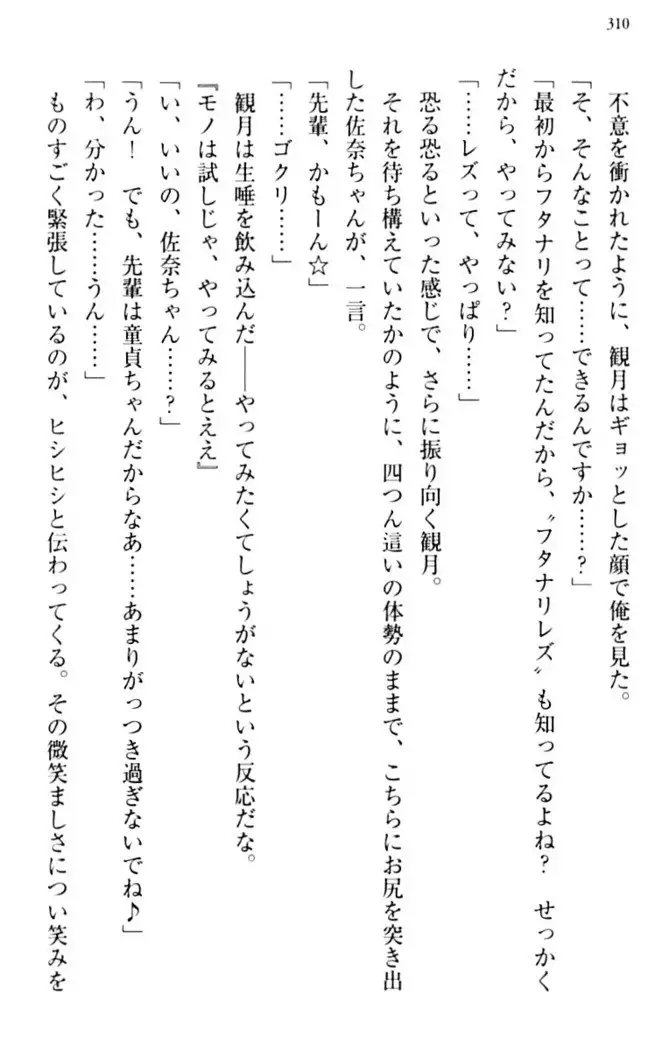 310
不意を衝かれたように、観月はギョッとした顔で俺を見た。
「そ、そんなことって……できるんですか……？」
「最初からフタナリを知ってたんだから、〝フタナリレズ〟も知ってるよね？　せっかく
だから、やってみない？」
「……レズって、やっぱり……」
恐る恐るといった感じで、さらに振り向く観月。
それを待ち構えていたかのように、四つん這いの体勢のままで、こちらにお尻を突き出
した佐奈ちゃんが、一言。
「先輩、かもーん☆」
「……ゴクリ……」
観月は生唾を飲み込んだ――やってみたくてしょうがないという反応だな。
『モノは試しじゃ、やってみるとええ』
「い、いいの、佐奈ちゃん……？」
「うん！　でも、先輩は童貞ちゃんだからなあ……あまりがっつき過ぎないでね♪」
「わ、分かった……うん……」
ものすごく緊張しているのが、ヒシヒシと伝わってくる。その微笑ましさについ笑みを